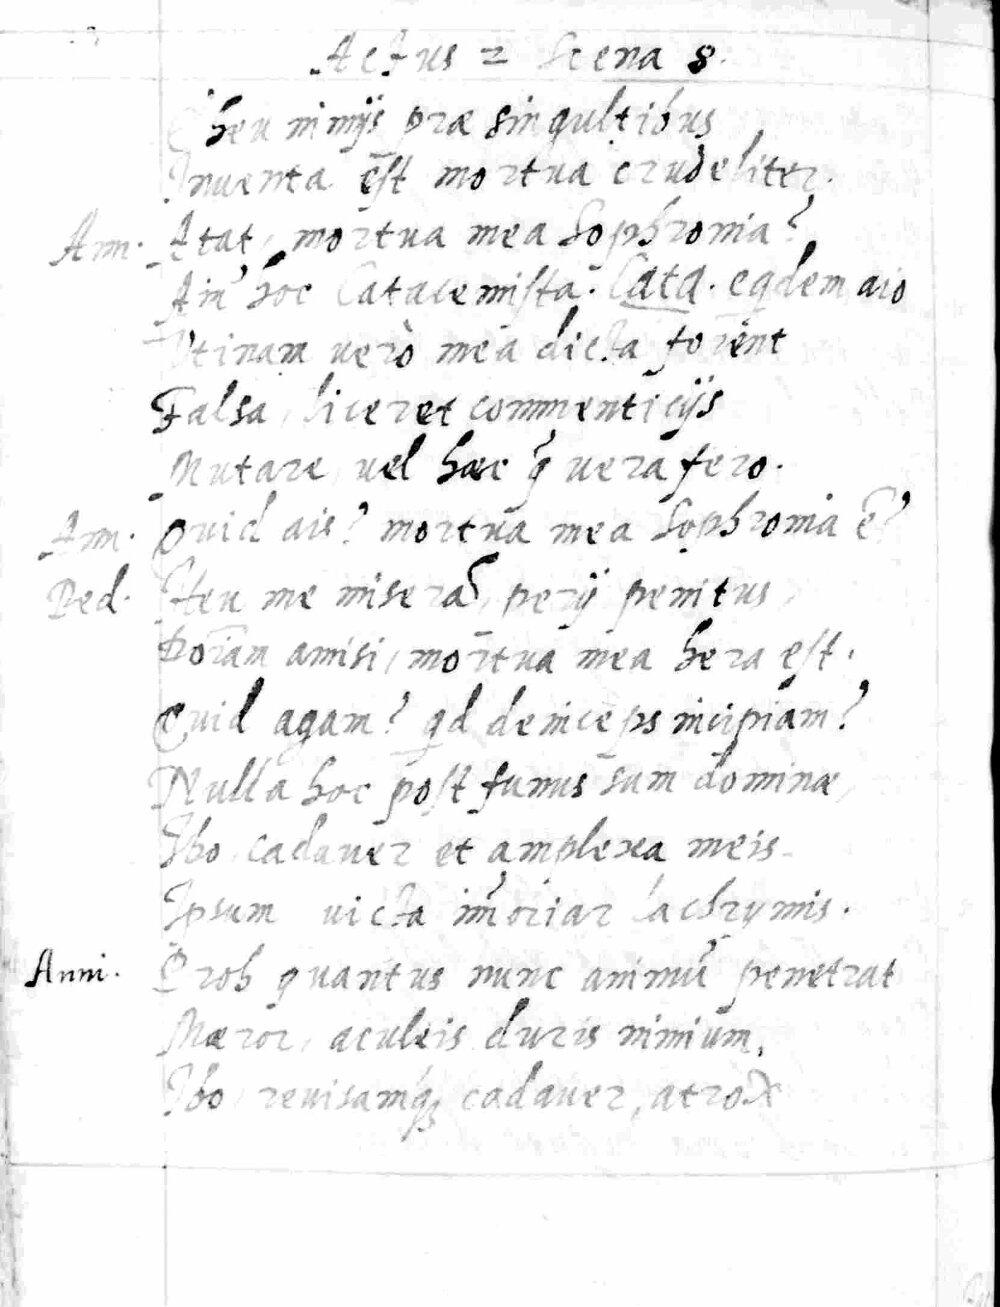 Actus 2 Scena 8.
Eheu nimijs præ singultibus
Inuenta est mortua crudeliter.
Ann. Atat, mortua mea Sophronia?
Ain' hoc Catacemista. Cata. eadem aio
Vtinam verò mea dicta forent
Falsa, liceret commenticijs
Mutare, vel hæc q̄ vera fero.
Ann. Quid ais? mortua mea Sophronia ē?
Ped. Heu me miserā, perij penitus
Doriam amisi, mortua mea hera est.
Quid agam? qd deinceps incipiam?
Nulla hoc post funus sum dominæ,
Ibo, cadauer et amplexa meis
Ipsum victa īmoriar lachrymis.
Anni. Proh quantus nunc animū penetrat
Mæror, aculeis duris nimium,
Ibo, reuisamq; cadauer, atrox